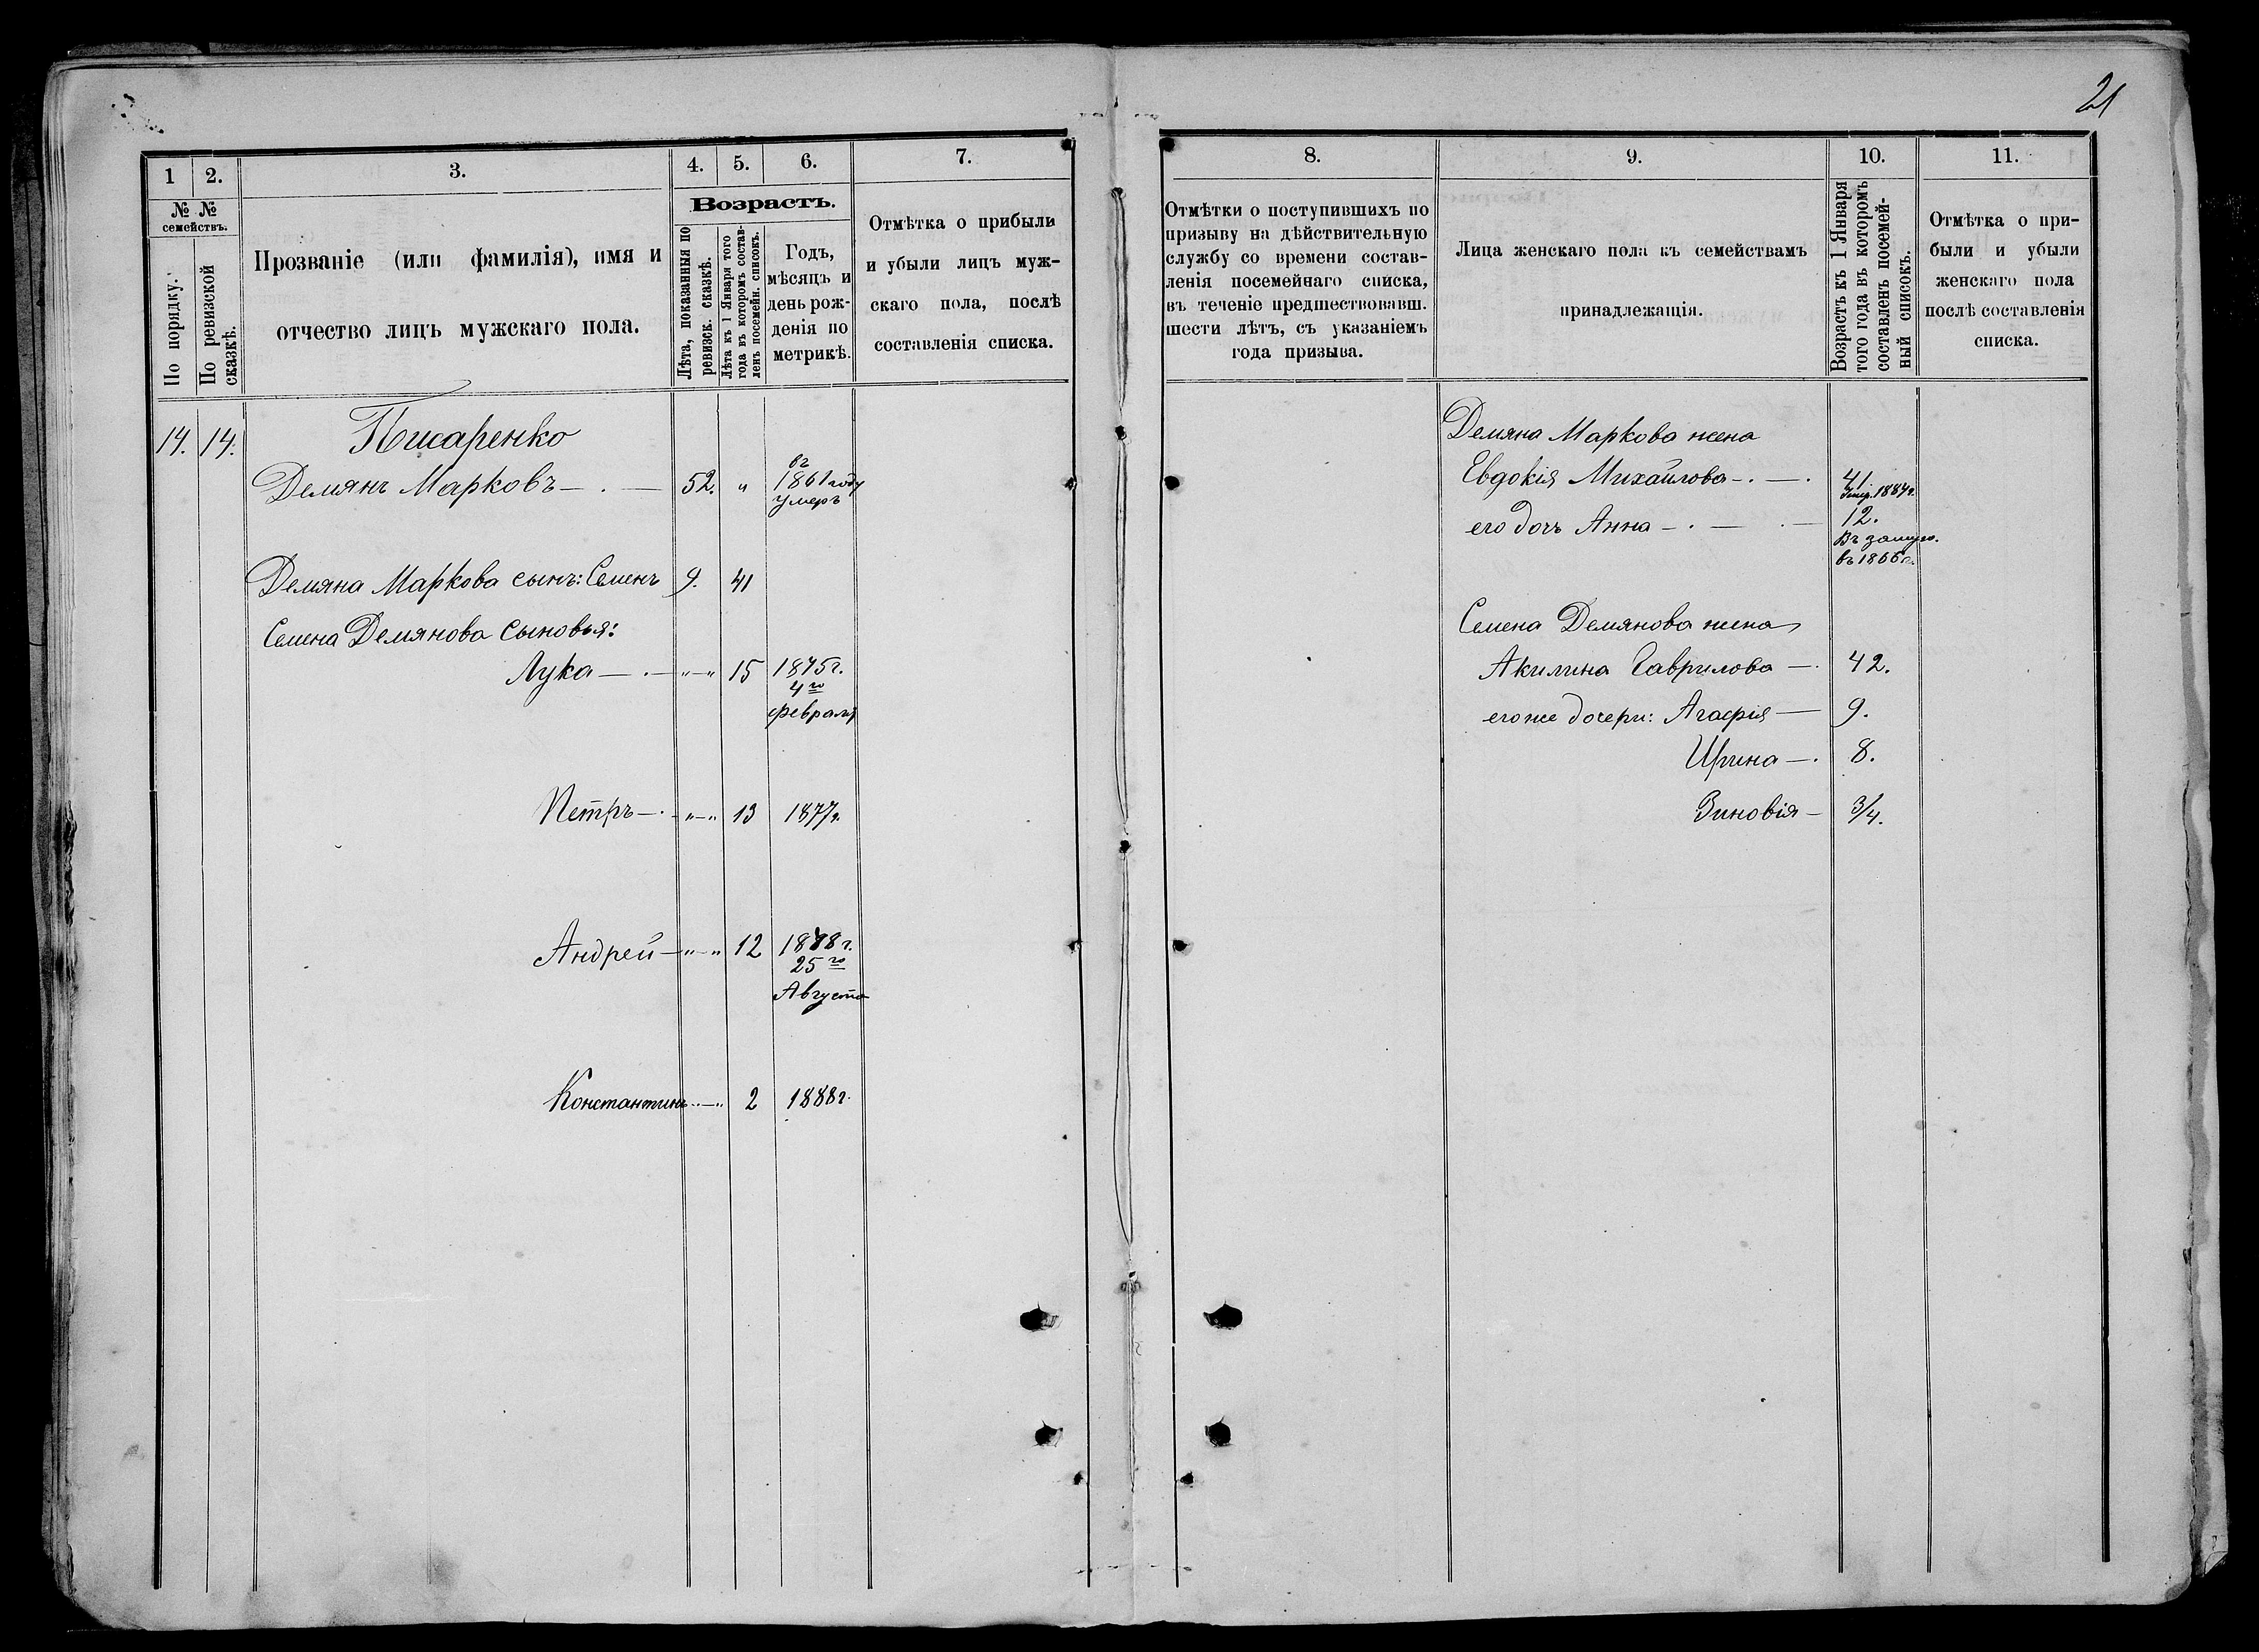 21
1 2. 3. 4. 5. 6. 7.
№ №
семействъ.
По порядку.
По ревизской
сказкѣ.
Прозваніе (или фамилія), имя и
отчество лицъ мужскаго пола.
Возрастъ.
Лѣта, показанныя по
ревизск. сказкѣ.
Лѣта къ 1 Января того
года въ которомъ состав-
ленъ посемейн. списокъ.
Годъ,
мѣсяцъ и
день рож-
денія по
метрикѣ.
Отмѣтка о прибыли
и убыли лицъ муж-
скаго пола, послѣ
составленія списка.
14. 14. Писаренко
Демянъ Марковъ — . — 52. „ въ
1861 году
умеръ
Демяна Маркова сынъ: Семенъ 9. 41
Семена Демянова сыновья:
Лука — . — „—„ 15 1875 г.
4го
февраля
Петръ — . „—„ 13 1877 г.
Андрей — „—„ 12 1878 г.
25го
Августа
Константинъ „—„ 2 1888 г.
8. 9. 10. 11.
Отмѣтки о поступившихъ по
призыву на дѣйствительную
службу со времени состав-
ленія посемейнаго списка,
въ теченіе предшествовавш.
шести лѣтъ, съ указаніемъ
года призыва.
Лица женскаго пола къ семействамъ
принадлежащія.
Возрастъ къ 1 Января
того года въ которомъ
составленъ посемей-
ный списокъ.
Отмѣтка о при-
были и убыли
женскаго пола
послѣ составленія
списка.
Демяна Маркова жена
Евдокія Михайлова — . — . 41
Умер. 1887 г.
его дочь Анна — . — . — 12.
Въ замуж.
въ 1866 г.
Семена Демянова жена
Акилина Гаврилова — . 42.
его же дочери: Агафія — 9.
Ирина — . 8.
Зиновія — 3/4.